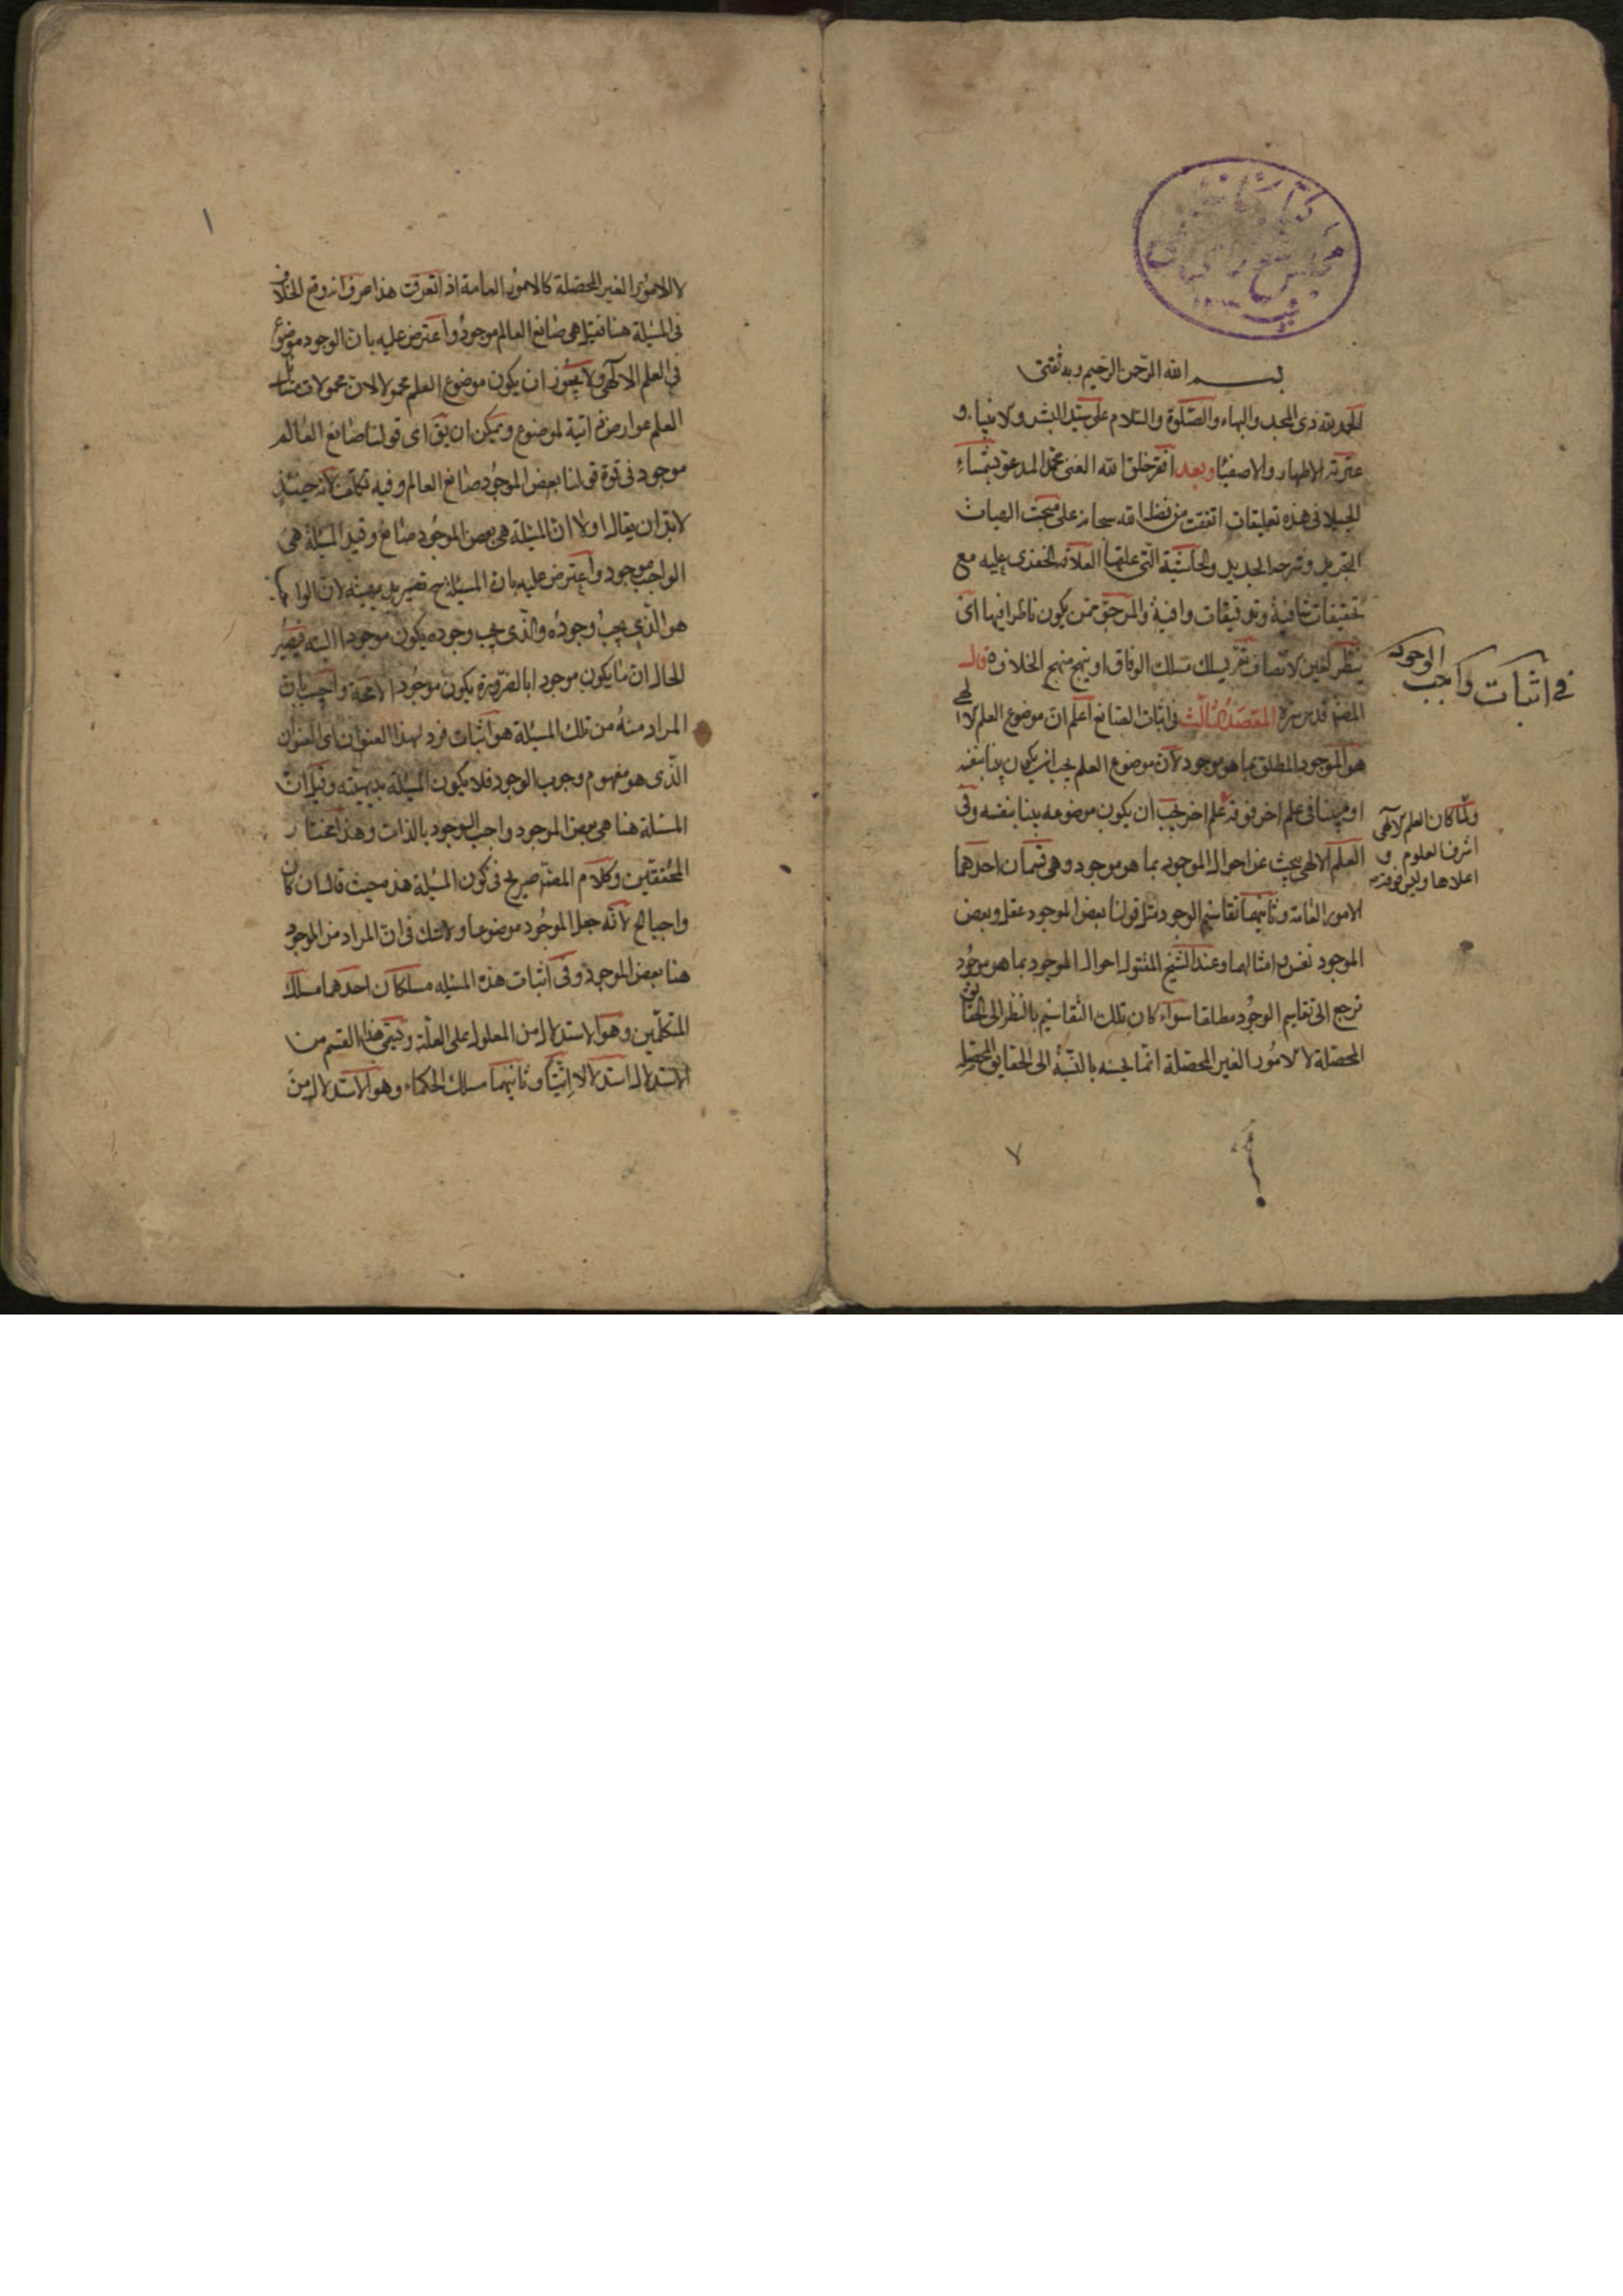 بسم الله الرحمن الرحیم وبه ثقتی
الحمد لله ذی المجد والبهاء والصلوة والسلام علی سید البشر والانبیاء و
عترته الاطهار والاصفیا وبعد افقر خلق الله الغنی محمد المدعو بشمساء
الجیلانی هذه تعلیقات اتفقت من فضل الله سبحانه علی مبحث الهیات
التجرید وشرحه الجدید والحاشیة التی علیها العلامه الخفری علیه مع
تحقیقات شافیة وتوفیقات وافیة والمرجو ممن یکون ناظرا فیها ان
ینظر بعین الانصاف ثم یسلک مسلک الوفاق او ینهج منهج الخلاف قال
المصنف قدس سره المقصد الثالث فی اثبات الصانع اعلم ان موضوع العلم الالهی
هو الموجود المطلق بما هو موجود لان موضوع العلم یجب ان یکون بینا بنفسه
او مبینا فی علم اخر فوقه علم اخر یجب ان یکون موضوعه بینا بنفسه وفی
العلم الالهی یبحث عن احوال الموجود بما هو موجود وهی قسمان احدهما
الامور العامة وثانیهما تقاسیم الوجود مثل قولنا بعض الموجود عقل وبعض
الموجود نفس وامثالهما وعند الشیخ المقتول احوال الموجود بما هو موجود
ترجع الی تقاسیم الوجود مطلقا سواء کان تلک التقاسیم بالنظر الی الحقائق
المحصلة او الامور الغیر المحصلة انما یحسنه بالنسبة الی الحقایق المحصلة
فی اثبات واجب الوجود
ولما کان العلم الالهی
اشرف العلوم و
اعلاها ولیس فوقه
٧
١
لا الامور الغیر المحصلة کالامور العامة اذا تعرفت هذا صرف انه وقع الخلاف
فی المسئلة هنا فقیل هی صانع العالم موجود واعترض علیه بان الوجود موضوع
فی العلم الالهی ولا یجوز ان یکون موضوع العلم محمولا لان محمولات مسائل
العلم عوارض ذاتیة لموضوع ویمکن ان یق ای قولنا صانع العالم
موجود فی قوة قولنا بعض الموجود صانع العالم وفیه تکلف لانه حینئذ
لابد ان یقال اولا ان المسئلة هی بعض الموجود صانع وقیل المسئلة هی
الواجب موجود واعترض علیه بان المسئلة ح تصیر بدیهیة لان الواجب
هو الذی یجب وجوده والذی یجب وجوده یکون موجودا البته فیصیر
الحال ان ما یکون موجودا بالضرورة یکون موجودا لا محة واجیب بان
المراد منه من تلک المسئلة هو اثبات فرد لهذا العنوان ای العنوان
الذی هو مفهوم وجوب الوجود فلا یکون المسئلة بدیهیته وقیل ان
المسئلة هنا هی بعض الموجود واجب الوجود بالذات وهذا مختار
المحققین وکلام المصنف صریح فی کون المسئلة هذه حیث قال ان کان
واجبا الخ لانه جعل الموجود موضوعا ولا شک فی ان المراد من الموجود
هنا بعض الموجود وفی اثبات هذه المسئله مسلکان احدهما مسلک
المتکلمین وهو الاستدلال من المعلول علی العلة ویسمی هذا القسم من
الاستدلال استدلالا انیا وثانیهما مسلک الحکماء وهو الاستدلال من